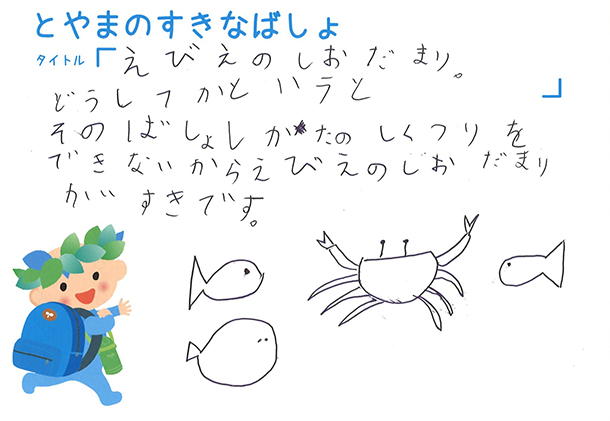 とやまのすきなばしょ
タイトル「えびえのしおだまり。」
どうしてかというと
そのばしょしがたのしくつりを
できないからえびえのしおだまり
がすきです。